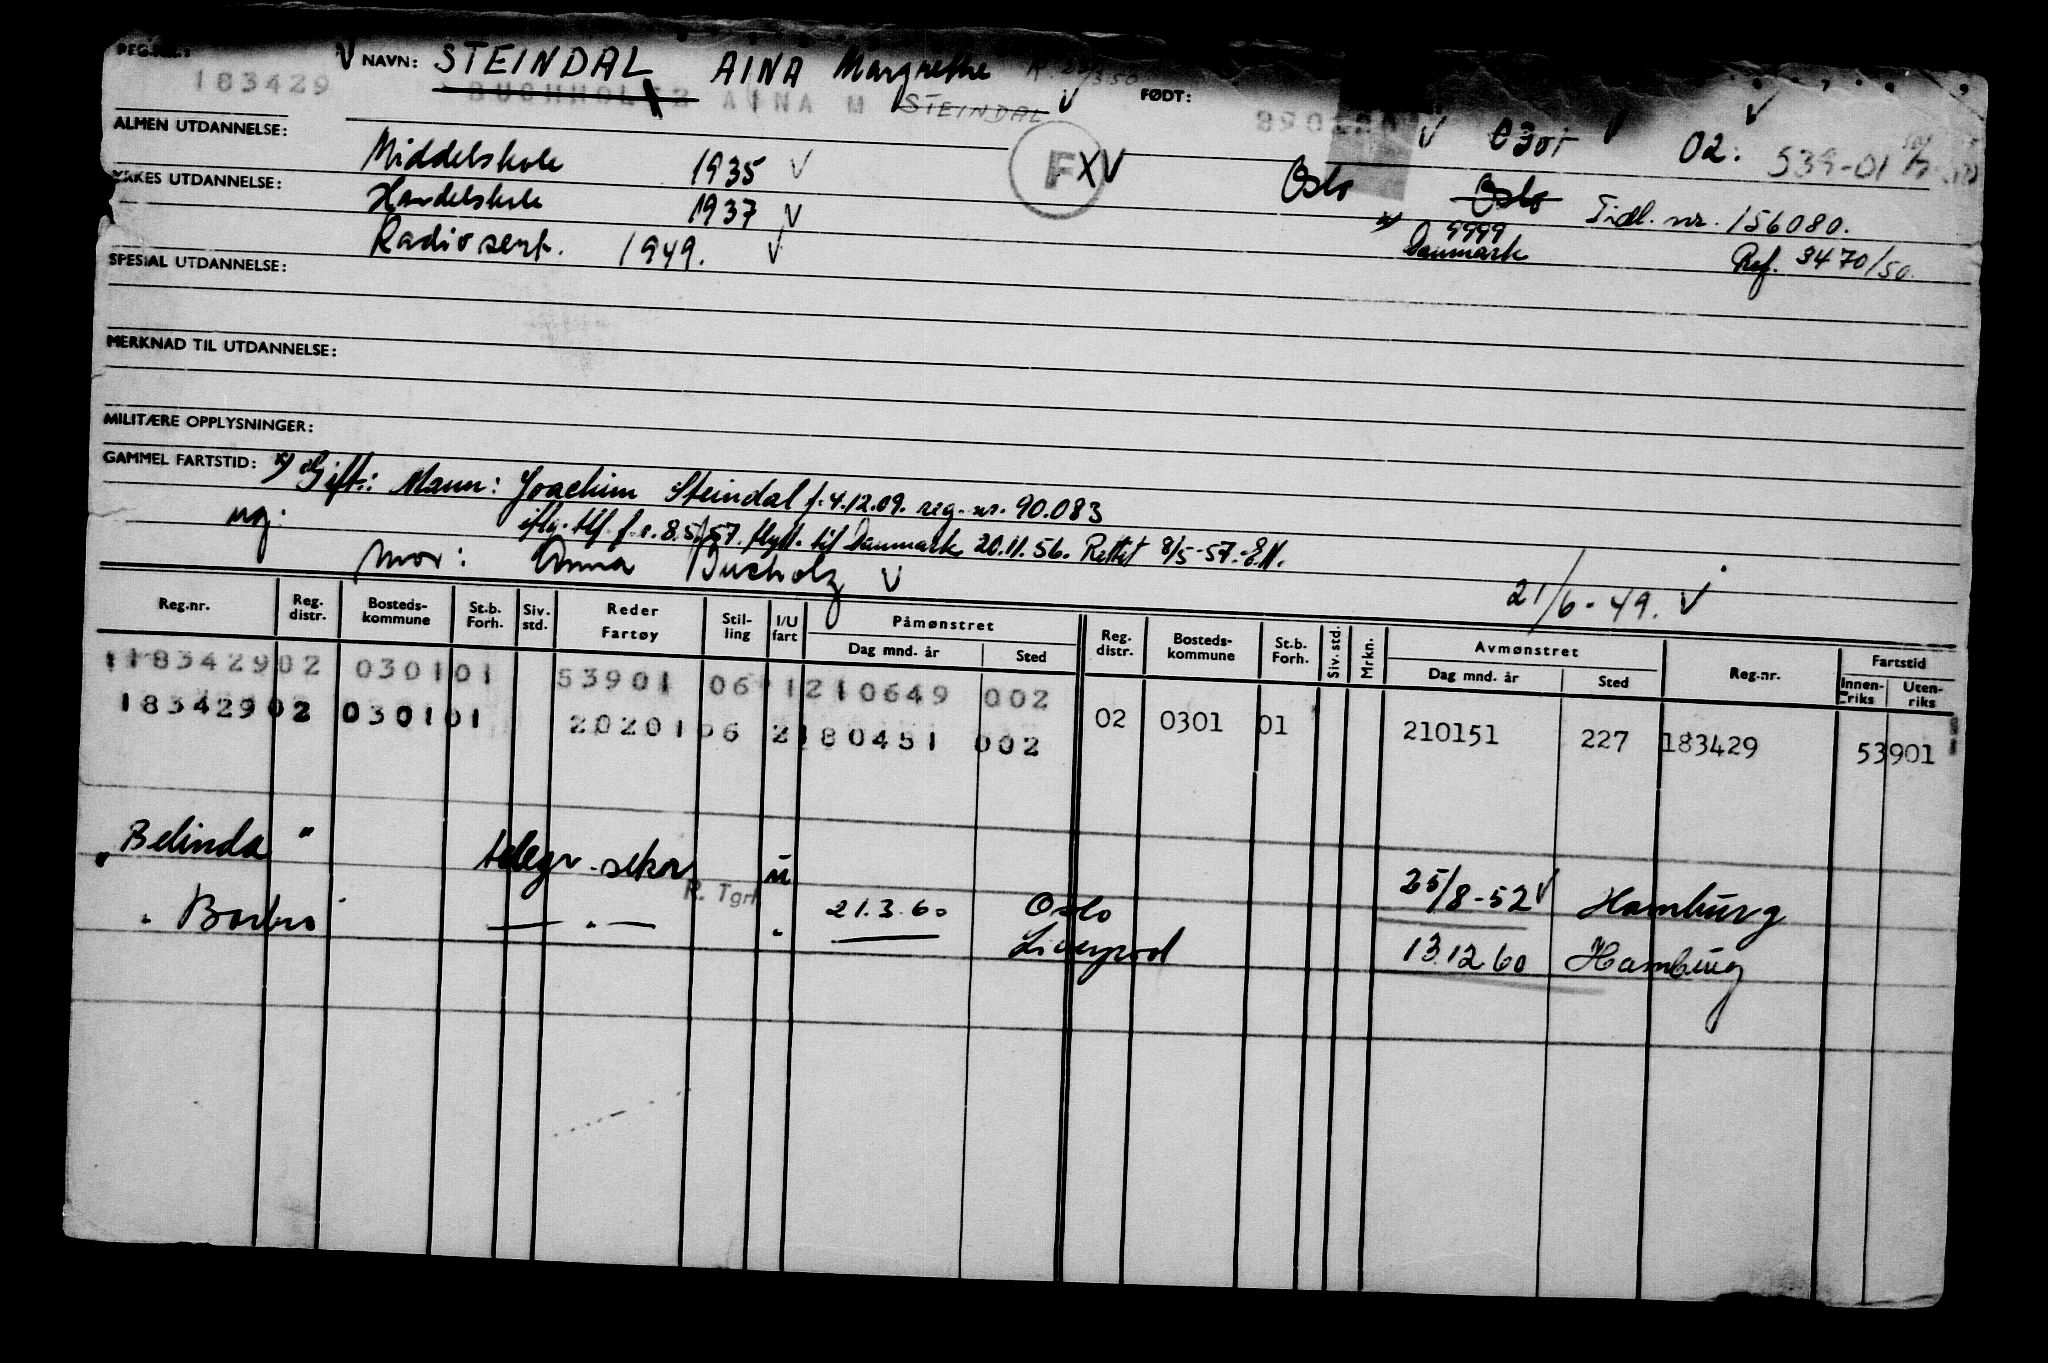 REG.NR.: 183429
V NAVN: STEINDAL AINA Margrethe
BUCHHOLTZ AINA M STEINDAL V FØDT:
V 0301 02: 539-01
ALMEN UTDANNELSE: Middelskole 1935 V F XV Oslo Oslo Tidl. nr. 156080.
YRKES UTDANNELSE: Handelskole 1937 V x) 9999 Danmark Ref. 3470/50.
Radiosert. 1949. V
SPESIAL UTDANNELSE:
MERKNAD TIL UTDANNELSE:
MILITÆRE OPPLYSNINGER:
GAMMEL FARTSTID: x) Gift: Mann: Joachim Steindal f. 4.12.09. reg. nr. 90.083
ug: iflg. tlf. f. r. 8.5.57. flytt. til Danmark 20.11.56. Rettet 8/5-57.-E.N.
mor: Anna Bucholz V 21/6-49. V
Reg.nr. Reg. distr. Bosteds-kommune St.b. Forh. Siv. std. Reder Fartøy Stil-ling I/U fart Påmønstret Dag mnd. år Sted Reg. distr. Bosteds-kommune St.b. Forh. Siv. std. Mrkn. Avmønstret Dag mnd. år Sted Reg.nr. Fartstid Innen-riks Uten-riks
183429 02 0301 01 53901 06 1 210649 002 02 0301 01 210151 227 183429 53901
183429 02 0301 01 20201 06 2 180451 002
"Belinda" telegr.-sekr u 25/8-52 V Hamburg
" Barbro R. Tgrf. — " — " 21.3.60 Oslo
Liverpool 13.12.60 Hamburg